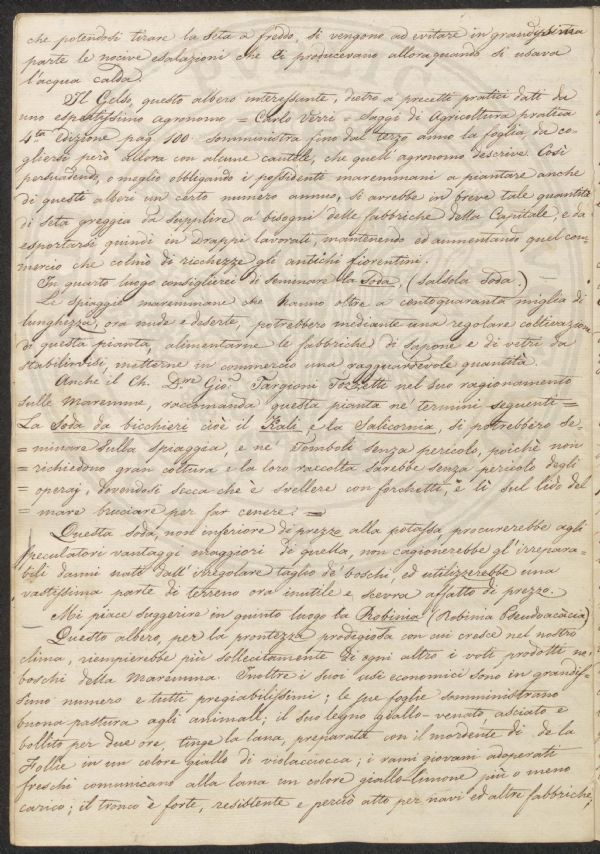 che potendosi tirare la seta a freddo, si vengono ad evitare in grandissima
parte le nocive esalazioni che si producevano allora quando si usava
l'acqua calda.
Il Gelso, questo albero interessante, dietro a' precetti pratici dati da
uno espertissimo agronomo = Carlo Verri = Saggi di Agricoltura pratica
4.ta Edizione pag. 100. somministra fino dal terzo anno la foglia, da co-
gliersi però allora con alcune cautele, che quell'agronomo descrive. Così
persuadendo, o meglio obbligando i possidenti maremmani a piantare anche
di questi alberi un certo numero annuo, si avrebbe in breve tale quantità
di seta greggia da supplire a bisogni delle fabbriche della Capitale, e da
esportarsi quindi in Drappi lavorati, mantenendo ed aumentando quel com-
mercio che colmò di ricchezze gli antichi fiorentini.
In quarto luogo consiglierei di seminare la Soda, (Salsola Soda.)
Le spiaggie maremmane che hanno oltre a centoquaranta miglia di
lunghezza, ora nude e deserte, potrebbero mediante una regolare coltivazione
di questa pianta, alimentarne le fabbriche di Sapone e di vetri da
stabilirvisi, metterne in commercio una ragguardevole quantità.
Anche il Ch. Dre Gio: Targioni Tozzetti nel suo ragionamento
sulle Maremme, raccomanda questa pianta ne' termini seguenti =
La Soda da bicchieri cioè il Kali, e la Salicornia, si potrebbero se-
= minare sulla spiaggia, e ne' Tomboli senza pericolo, poichè non
= richiedono gran coltura e la loro raccolta sarebbe senza pericolo degli
= operaj, dovendosi secca che è svellere con forchette, e lì sul lido del
= mare bruciare per far cenere. =
Questa soda, non inferiore di prezzo alla potassa, procurerebbe agli
speculatori vantaggi maggiori di quella, non cagionerebbe gl'irrepara-
bili danni nati dall'irregolare taglio de' boschi, ed utilizzerebbe una
vastissima parte di terreno ora inutile e scevra affatto di prezzo.
Mi piace suggerire in quinto luogo la Robinia (Robinia Pseudoacacia)
Questo albero, per la prontezza prodigiosa con cui cresce nel nostro
clima, riempierebbe più sollecitamente di ogni altro i voti prodotti ne'
boschi della Maremma. Inoltre i suoi usi economici sono in grandis-
simo numero e tutti pregiabilissimi; le sue foglie somministrano
buona pastura agli animali; il suo legno giallo-venato, asciato e
bollito per due ore, tinge la lana, preparata con il mordente di de la
Follie in un colore giallo di violacciocca; i rami giovani adoperati
freschi comunicano alla lana un colore giallo-limone più o meno
carico; il tronco è forte, resistente e perciò atto per navi ed altre fabbriche,